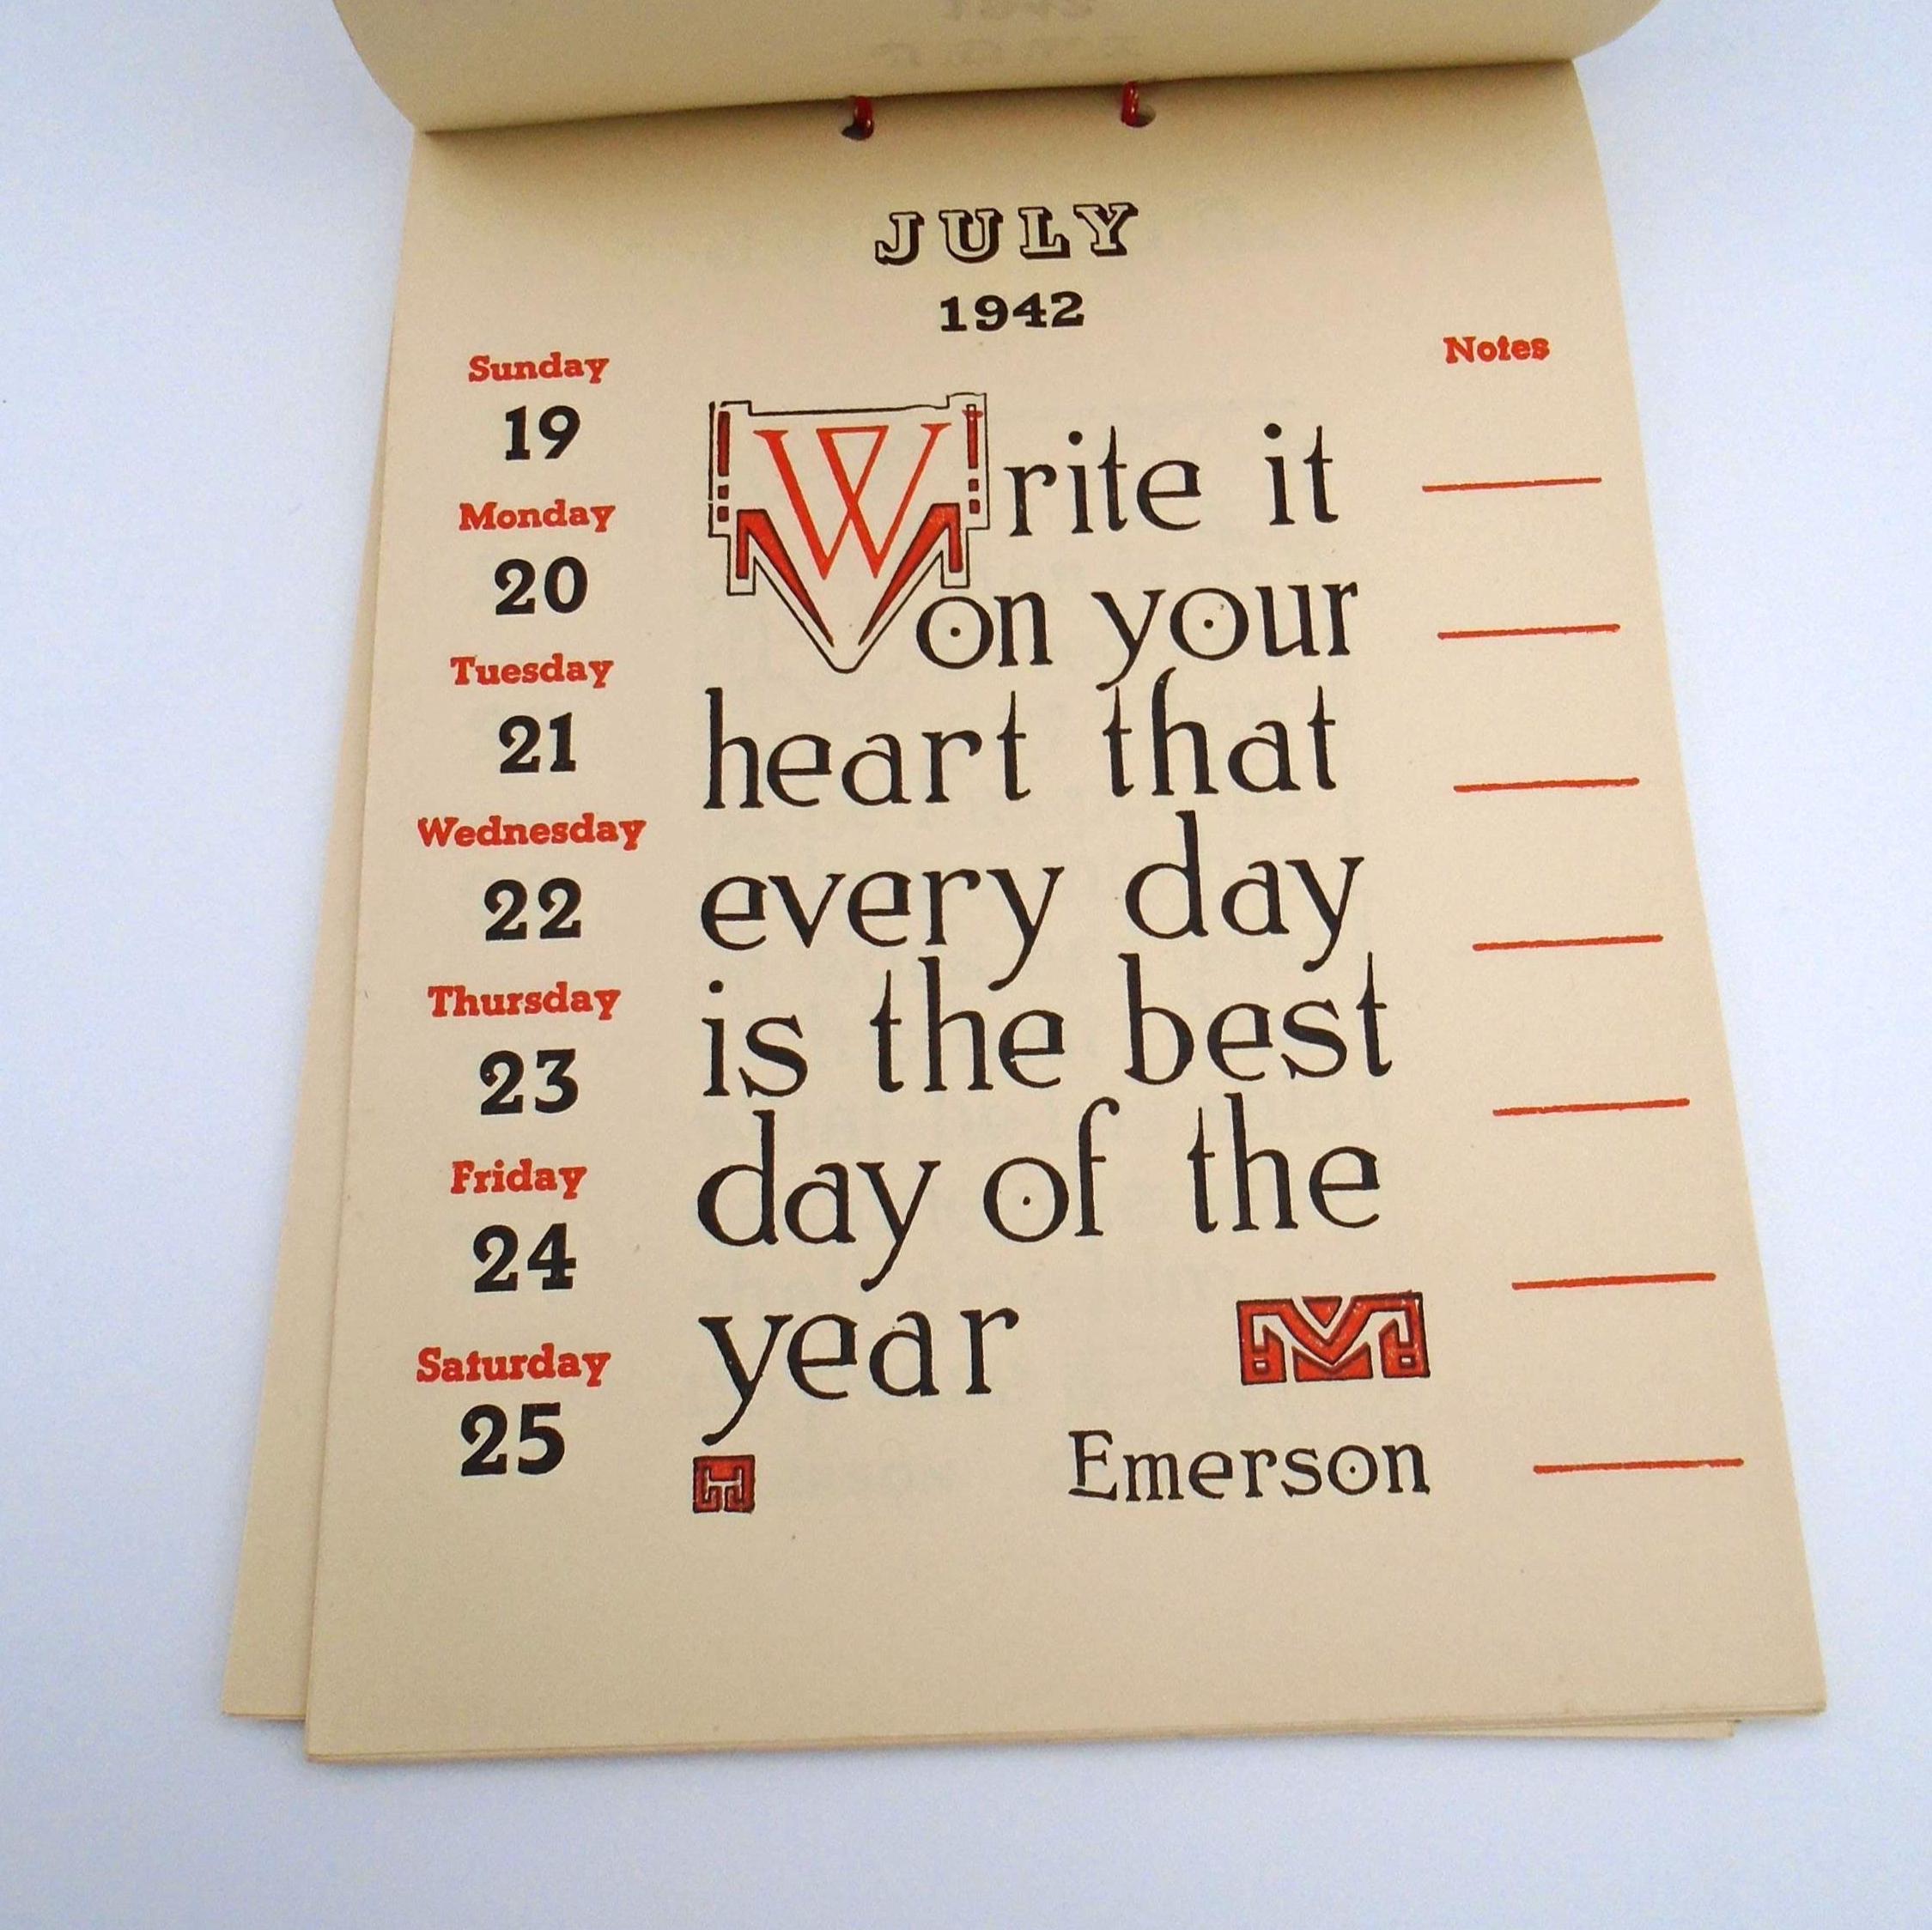 JULY
1942
Notes
Sunday
19
Monday
20
Tuesday
21
Wednesday
22
Thursday
23
Friday
24
Saturday
25
Write it
on your
heart that
every day
is the best
day of the
year
Emerson